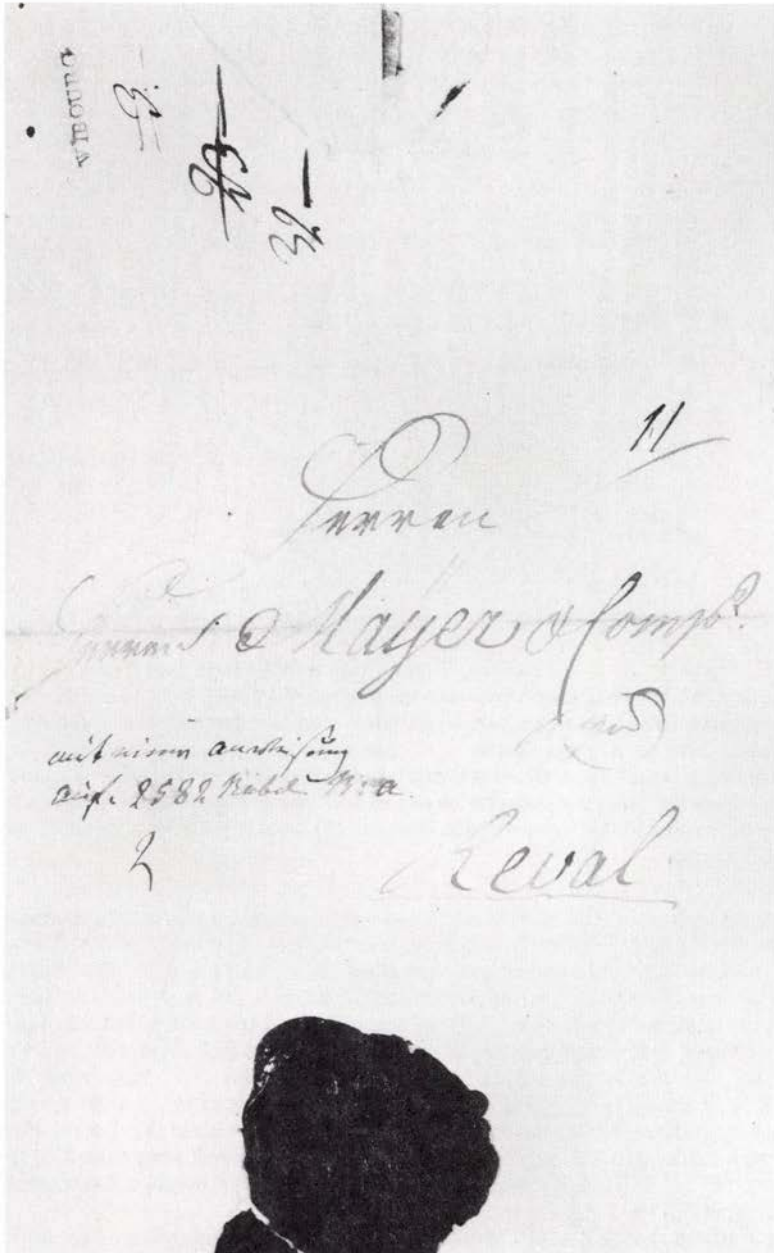 WIBOURG
53.
25—
32—
11
Herren
Mayer & Comp.
mit einer Anweisung
auf. 2582 Rubel
2
Reval